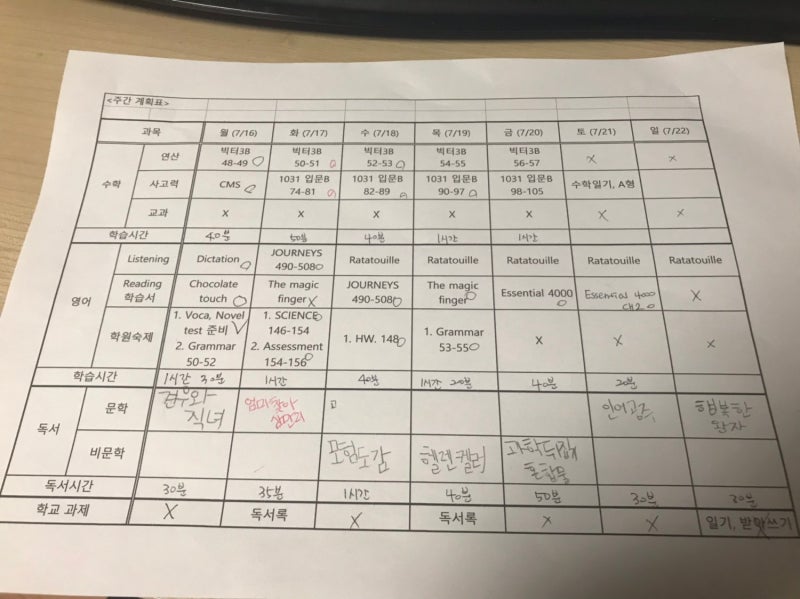 <주간 계획표>
과목 월 (7/16) 화 (7/17) 수 (7/18) 목 (7/19) 금 (7/20) 토 (7/21) 일 (7/22)
수학
연산 빅터3B 48-49 빅터3B 50-51 빅터3B 52-53 빅터3B 54-55 빅터3B 56-57 x x
사고력 CMS 1031 입문B 74-81 1031 입문B 82-89 1031 입문B 90-97 1031 입문B 98-105 수학일기, A형
교과 x x x x x x x
학습시간 40분 50분 40분 1시간 1시간
영어
Listening Dictation JOURNEYS 490-508 Ratatouille Ratatouille Ratatouille Ratatouille Ratatouille
Reading 학습서 Chocolate touch The magic finger JOURNEYS 490-508 The magic finger Essential 4000 Essential 4000 ch2 X
학원숙제 1. Voca, Novel test 준비 2. Grammar 50-52 1. SCIENCE 146-154 2. Assessment 154-156 1. HW. 148 1. Grammar 53-55 x x x
학습시간 1시간 30분 1시간 40분 1시간 20분 40분 20분
독서
문학 견우와 직녀 엄마 찾아 삼만리 인어공주 행복한 왕자
비문학 모험도감 헬렌켈러 과학 혼합물
독서시간 30분 35분 1시간 40분 50분 30분 30분
학교 과제 X 독서록 x 독서록 x x 일기, 받아쓰기